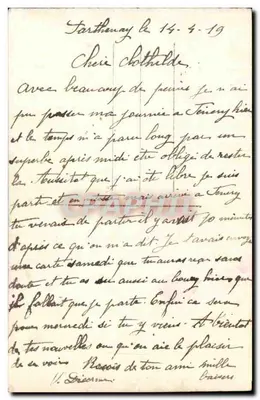 Parthenay le 14-4-19
Chère Clothilde
Avec beaucoup de peine je n'ai
pu passer ma journée à hier
et le temps m'a paru long par un
superbe après midi être obligé de rester
là Aussitôt que j'ai été libre je suis
parti et en arrivé à
tu venais de partir il y avait 10 minutes
d'après ce qu'on m'a dit. Je t'avais envoyé
une carte samedi que tu auras reçu sans
doute et tu as su aussi au
fallait que je parte. Enfin ce sera
pour mercredi si tu y viens. A bientôt
de tes nouvelles ou qu'on aie le plaisir
de se voir. Reçois de ton ami mille
baisers